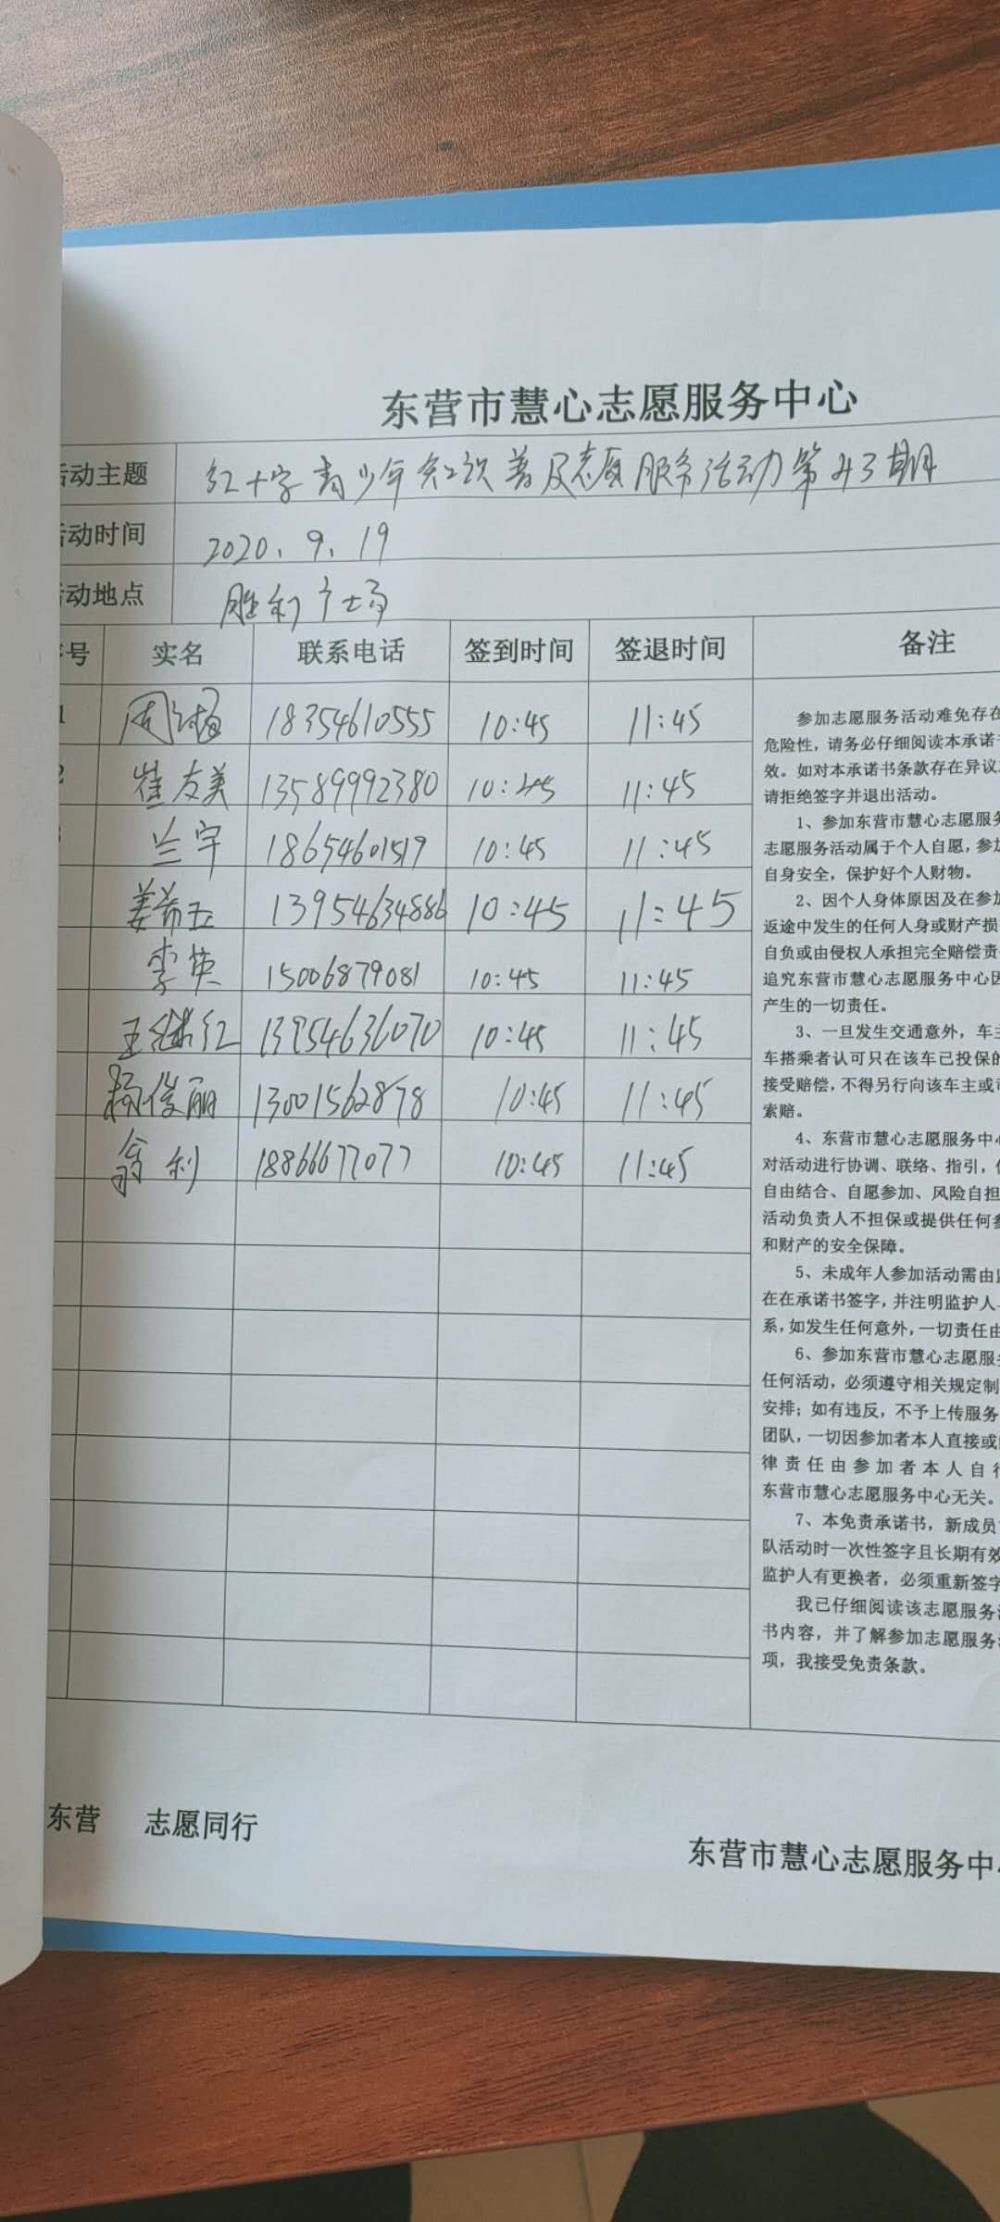 东营市慧心志愿服务中心
活动主题 红十字青少年知识普及志愿服务活动第43期
活动时间 2020.9.19
活动地点 胜利广场
序号 实名 联系电话 签到时间 签退时间 备注
1 周 18354610555 10:45 11:45
2 崔友美 13589992380 10:45 11:45
兰宇 18654601519 10:45 11:45
姜希玉 13954634886 10:45 11:45
李英 15006879081 10:45 11:45
王继红 13954636070 10:45 11:45
杨俊丽 13001562878 10:45 11:45
翁利 18866677077 10:45 11:45
参加志愿服务活动难免存在
危险性，请务必仔细阅读本承诺书
效。如对本承诺书条款存在异议
请拒绝签字并退出活动。
1、参加东营市慧心志愿服务
志愿服务活动属于个人自愿，参加
自身安全，保护好个人财物。
2、因个人身体原因及在参加
返途中发生的任何人身或财产损
自负或由侵权人承担完全赔偿责
追究东营市慧心志愿服务中心因
产生的一切责任。
3、一旦发生交通意外，车主
车搭乘者认可只在该车已投保的
接受赔偿，不得另行向该车主或
索赔。
4、东营市慧心志愿服务中心
对活动进行协调、联络、指引，
自由结合、自愿参加、风险自担
活动负责人不担保或提供任何参
和财产的安全保障。
5、未成年人参加活动需由监
在在承诺书签字，并注明监护人
系，如发生任何意外，一切责任由
6、参加东营市慧心志愿服务
任何活动，必须遵守相关规定制
安排；如有违反，不予上传服务
团队，一切因参加者本人直接或
律责任由参加者本人自行
东营市慧心志愿服务中心无关。
7、本免责承诺书，新成员
队活动时一次性签字且长期有效
监护人有更换者，必须重新签字
我已仔细阅读该志愿服务活
书内容，并了解参加志愿服务
项，我接受免责条款。
东营 志愿同行
东营市慧心志愿服务中心